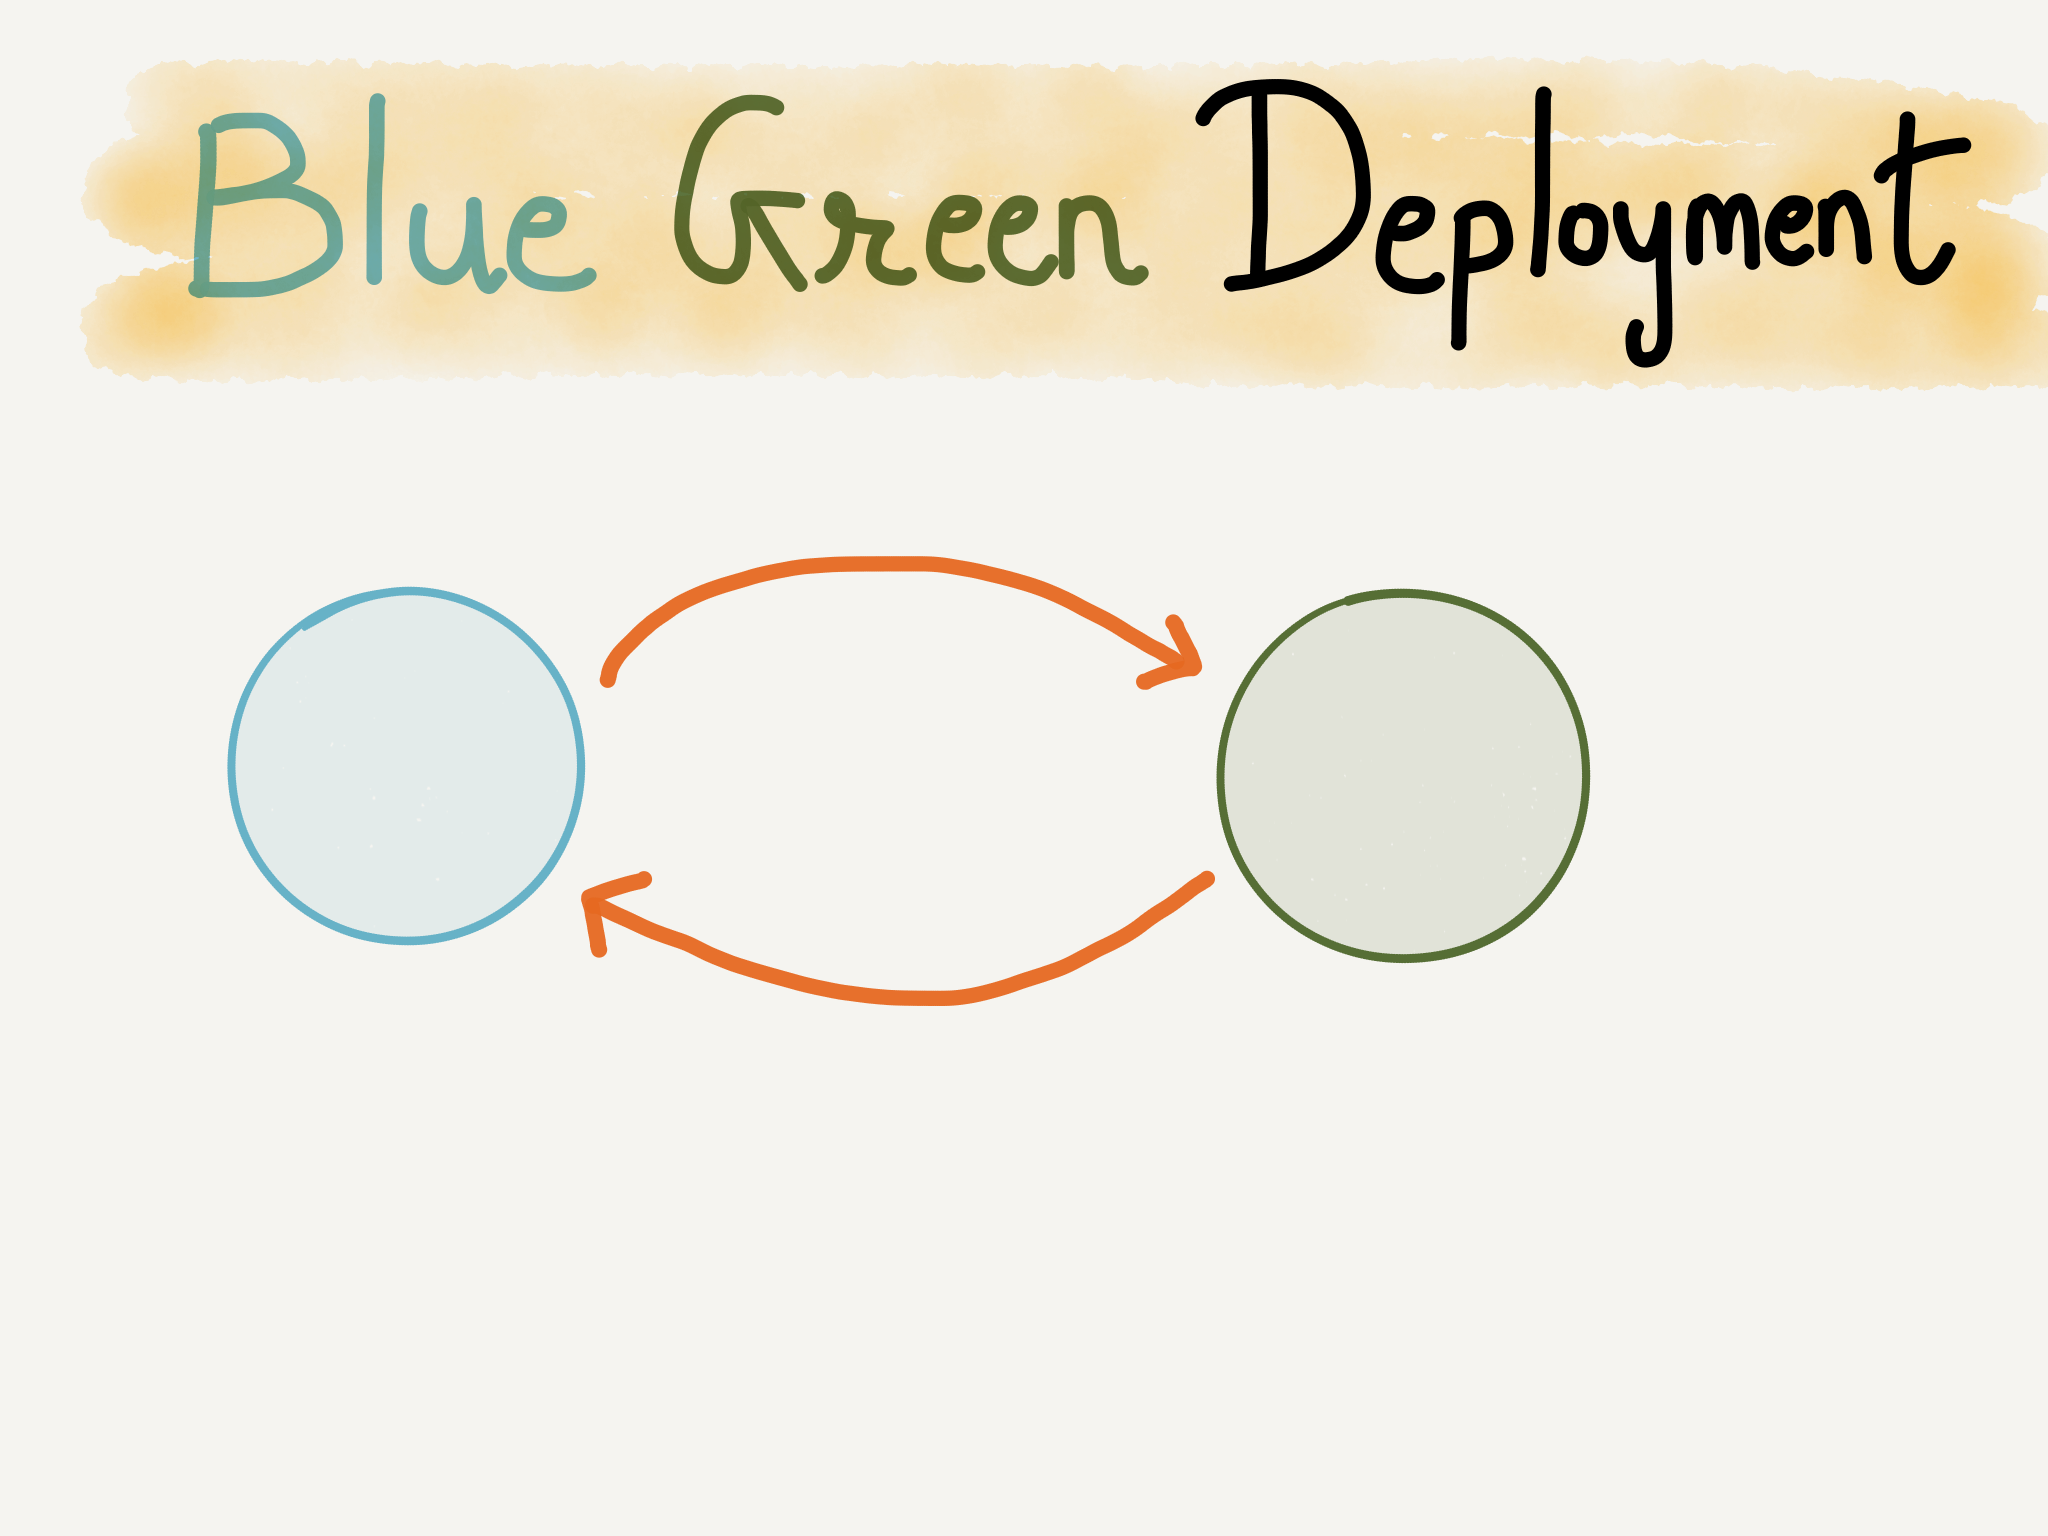 Blue Green Deployment